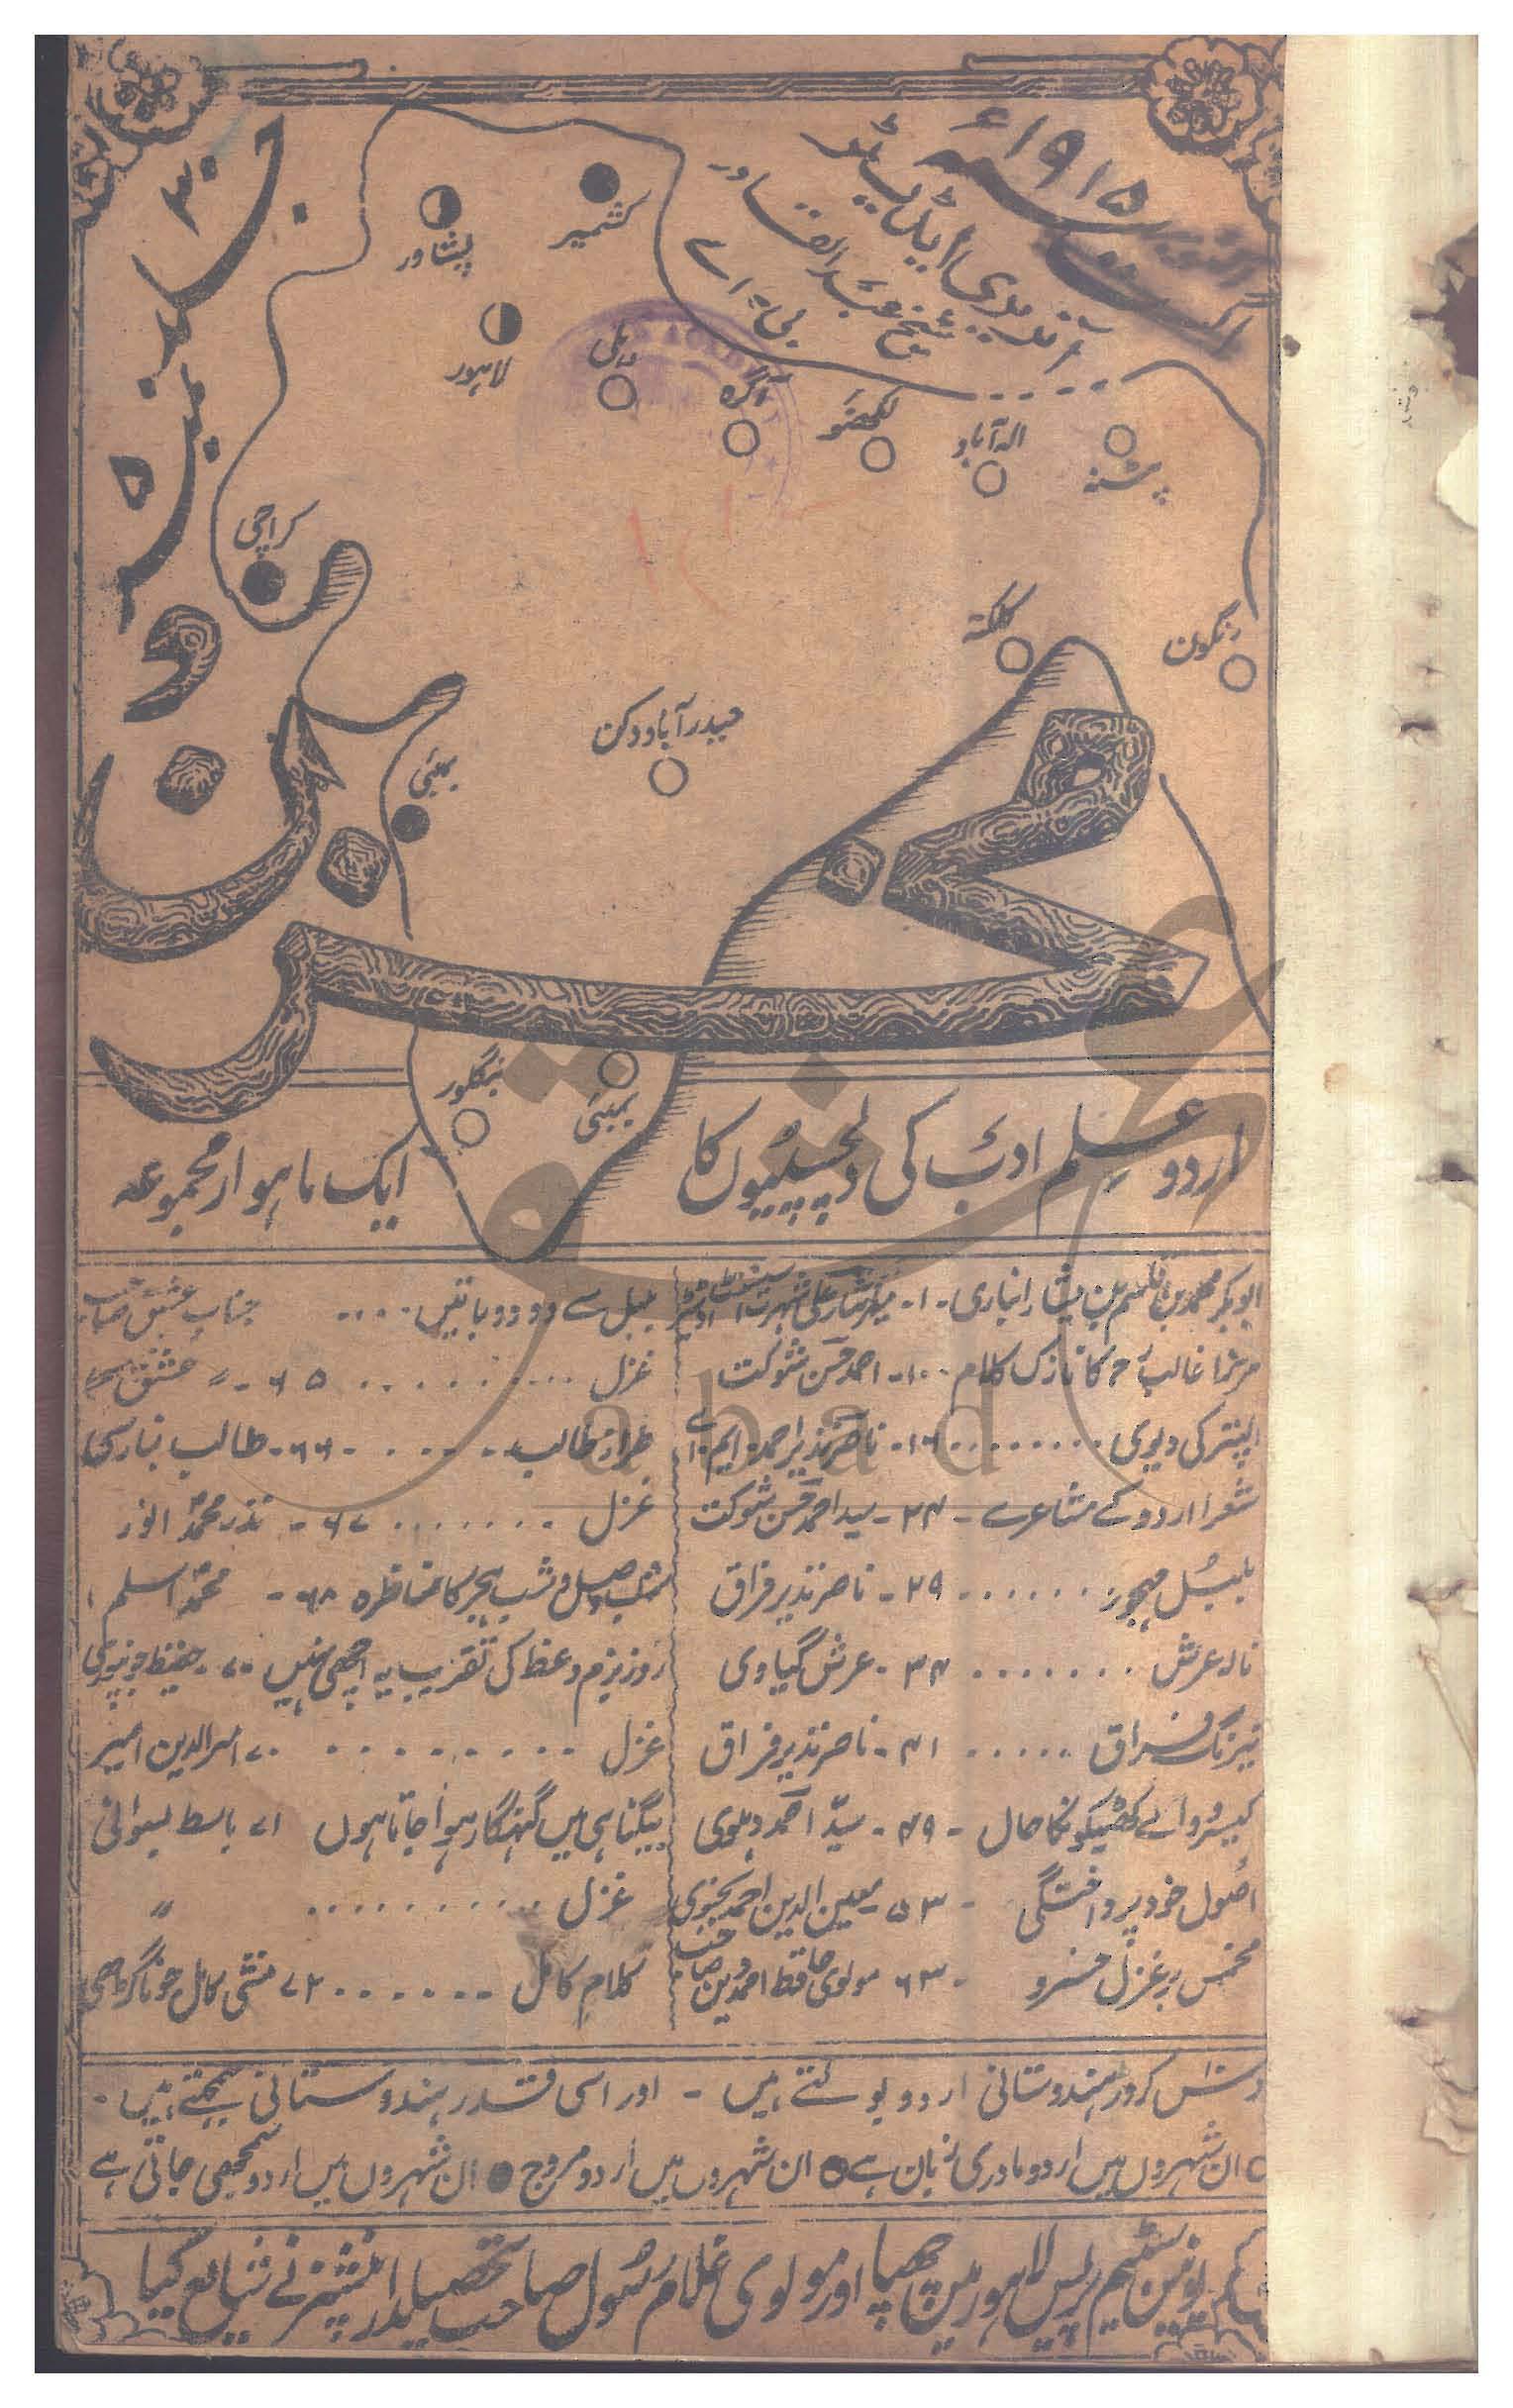 اگست ۱۹۱۵ء
آنریری ایڈیٹر
شیخ عبدالقادر
بی۔ اے
جلد ۳۰
نمبر ۵
کشمیر
پشاور
لاہور
دہلی
آگرہ
لکھنؤ
الہ آباد
پٹنہ
کراچی
کلکتہ
رنگون
حیدرآباد دکن
بمبئی
مخزن
بنگلور
اردو علم ادب کی دلچسپیوں کا
ایک ماہوار مجموعہ
ابوبکر محمد بن قاسم بن بشار انباری - ۱ -
مرزا غالب کا نازک کلام - ۱۰ - احمد حسن شوکت
کی دیوی ........ ۱۶ - ناصر نذیر احمد ایم اے
شعرا اردو کے مشاعرے - ۲۴ - سید احمد حسن شوکت
بلبل مہجور ...... ۲۹ - ناصر نذیر فراق
نالہ عرش ....... ۳۴ - عرش گیاوی
نیرنگ فراق ...... ۴۱ - ناصر نذیر فراق
حال - ۴۹ - سید احمد دہلوی
اصول خود پرداختگی - ۵۳ - معین الدین احمد
مخمس بر غزل خسرو - ۶۳ مولوی حافظ احمد دین صاحب
بلبل سے دو دو باتیں .... جناب عشق صاحب
غزل .......... ۶۵ - عشق
طراز طالب ...... ۶۶ - طالب بنارسی
غزل ........ ۶۷ - نذر محمد انور
شب وصل و شب ہجر کا مناظرہ ۶۸ - محمد اسلم
روز بزم وعظ کی تقریب یہ اچھی نہیں ۷۰ - حفیظ جونپوری
غزل ......... ۷۰ امیرالدین امیر
بیگناہی میں گنہگار ہوا جاتا ہوں ۷۱ باسط بسوانی
غزل ........... 〃
کلام کامل ...... ۷۲ منشی کامل جوناگڑھی
دس کروڑ ہندوستانی اردو بولتے ہیں - اور اسی قدر ہندوستانی سمجھتے ہیں -
○ ان شہروں میں اردو مادری زبان ہے ◐ ان شہروں میں اردو مروج ● ان شہروں میں اردو سمجھی جاتی ہے
یونین سٹیم پریس لاہور میں چھپا اور مولوی غلام رسول صاحب تحصیلدار پنشنر نے شایع کیا
abad